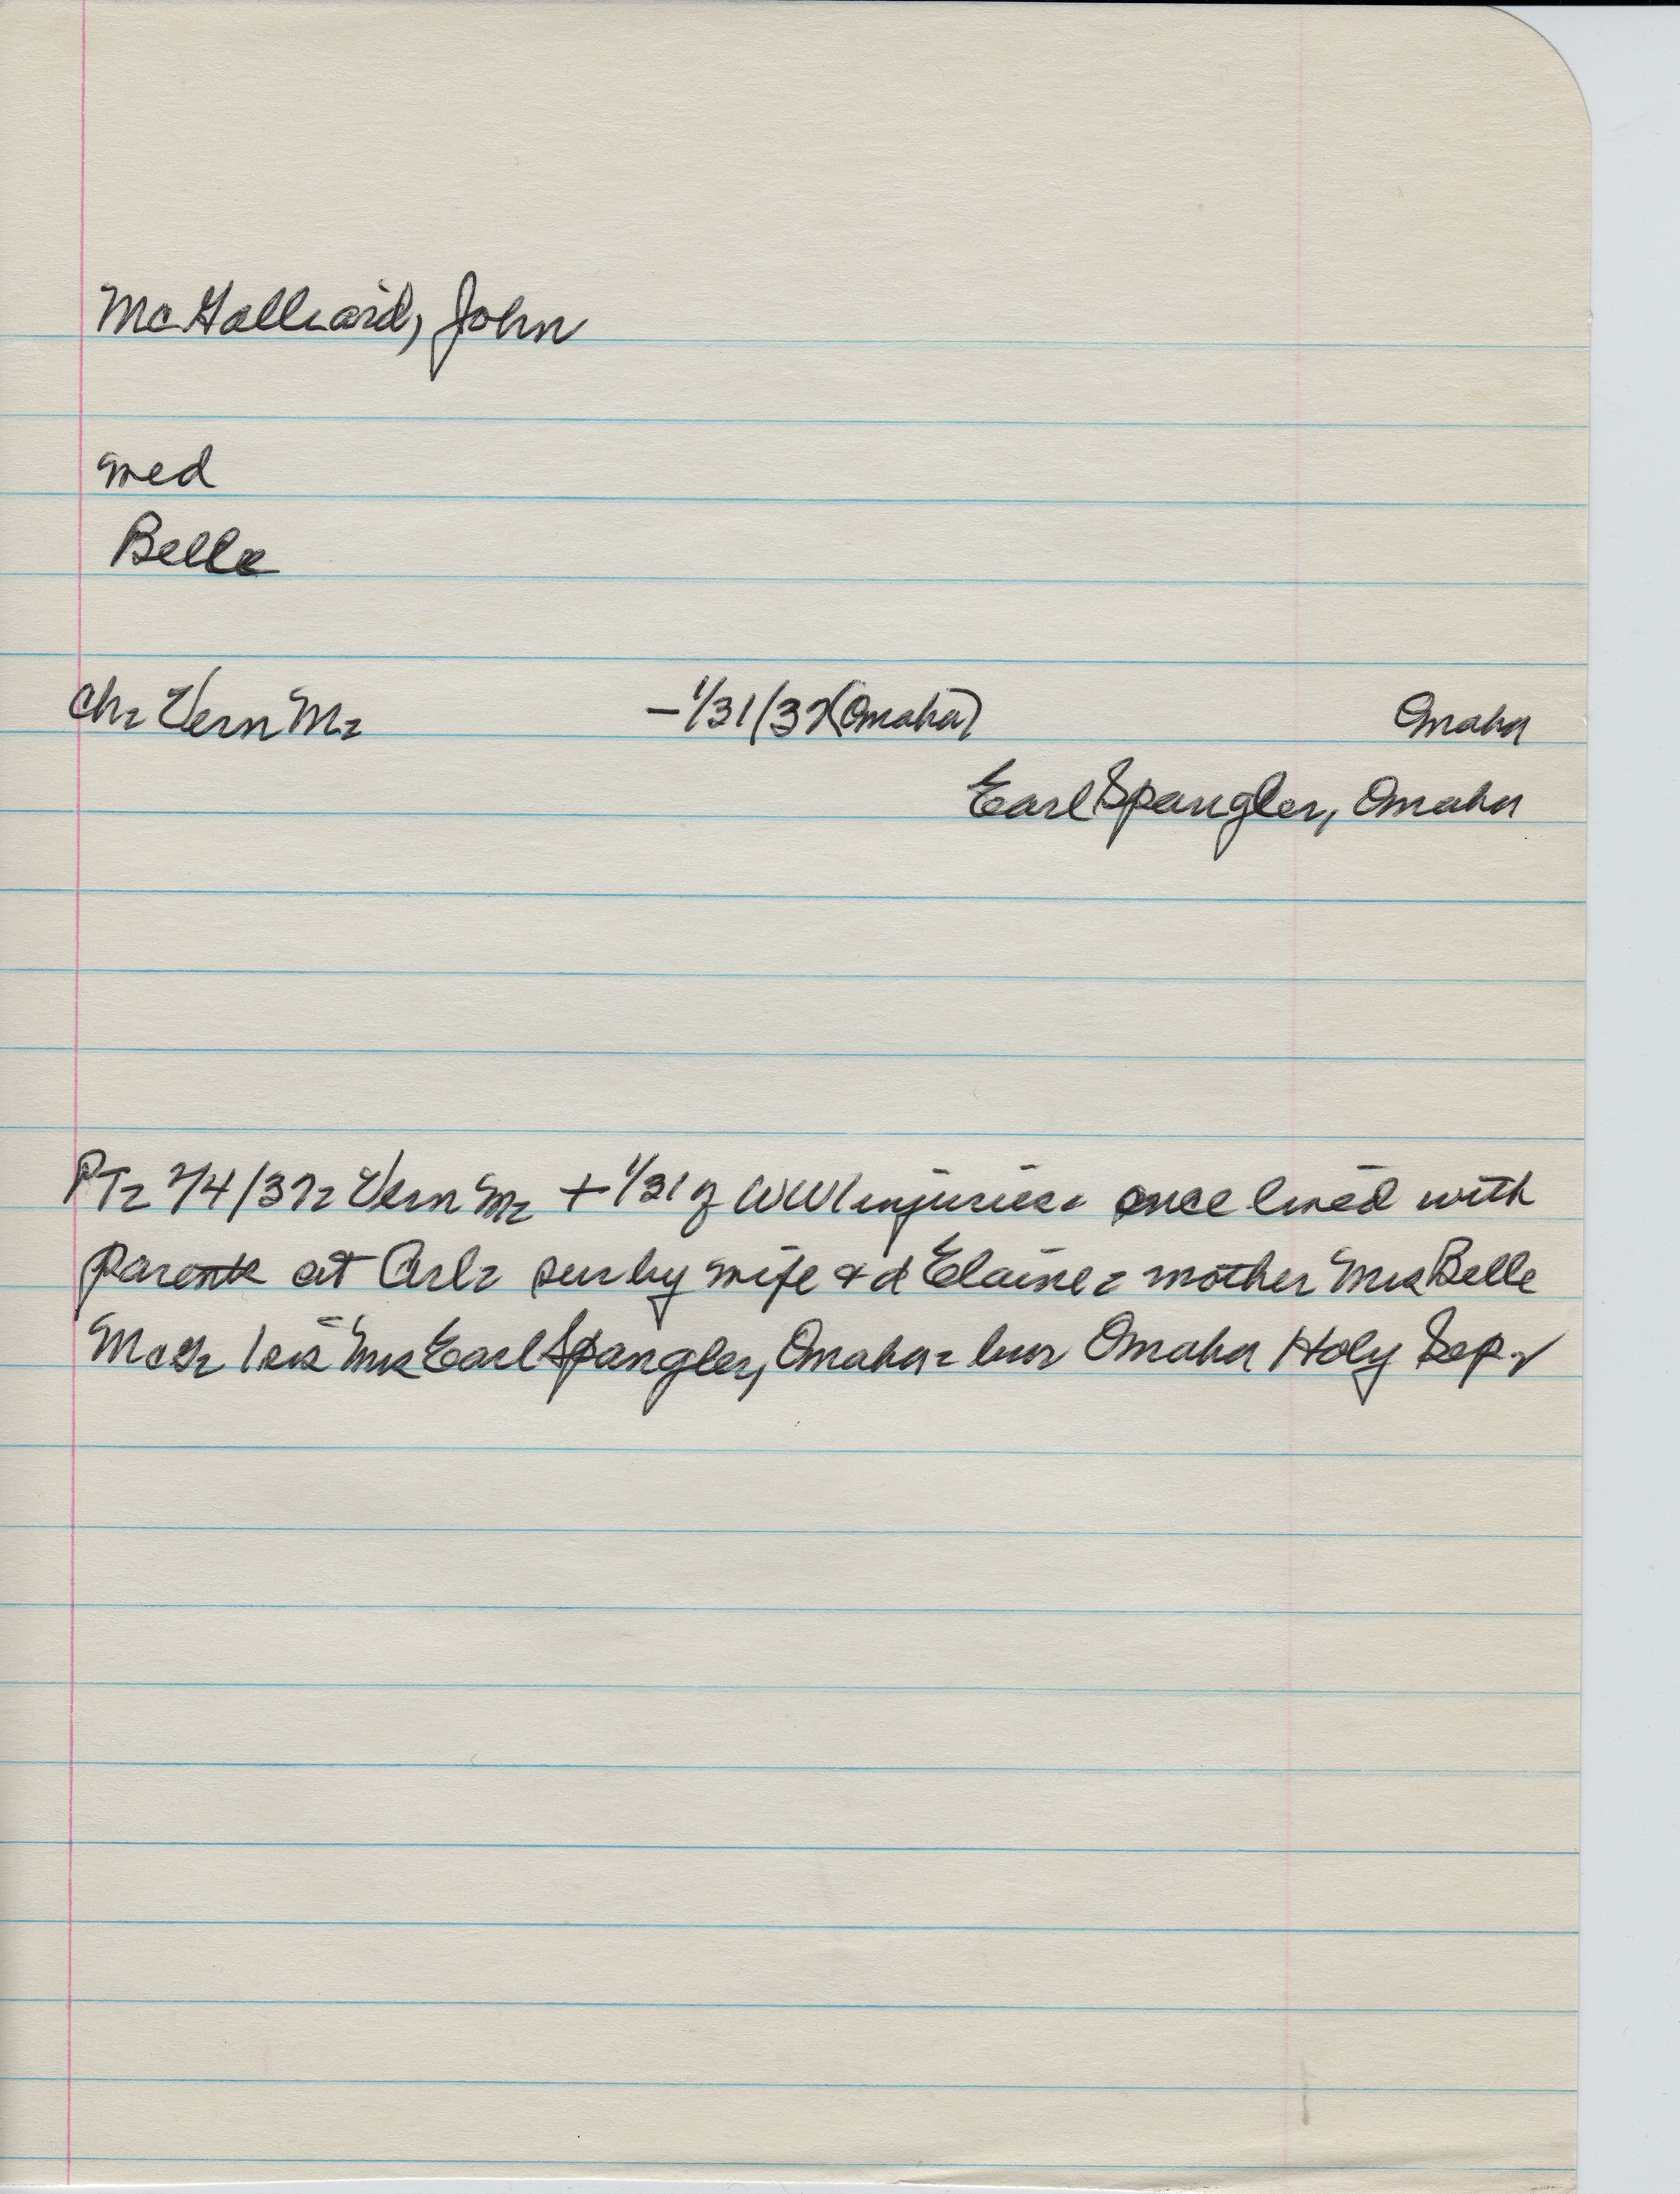 McGalliard, John
med
Belle
Ch: Vern M: -1/31/37(Omaha) Omaha
Earl Spangler, Omaha
PT: 2/4/37: Vern M: + 1/31 of WWI injuries: once lived with
parents at Arl: sur by wife & d Elaine: mother Mrs Belle
McG: 1 sis Mrs Earl Spangler, Omaha: bur Omaha Holy Sep.